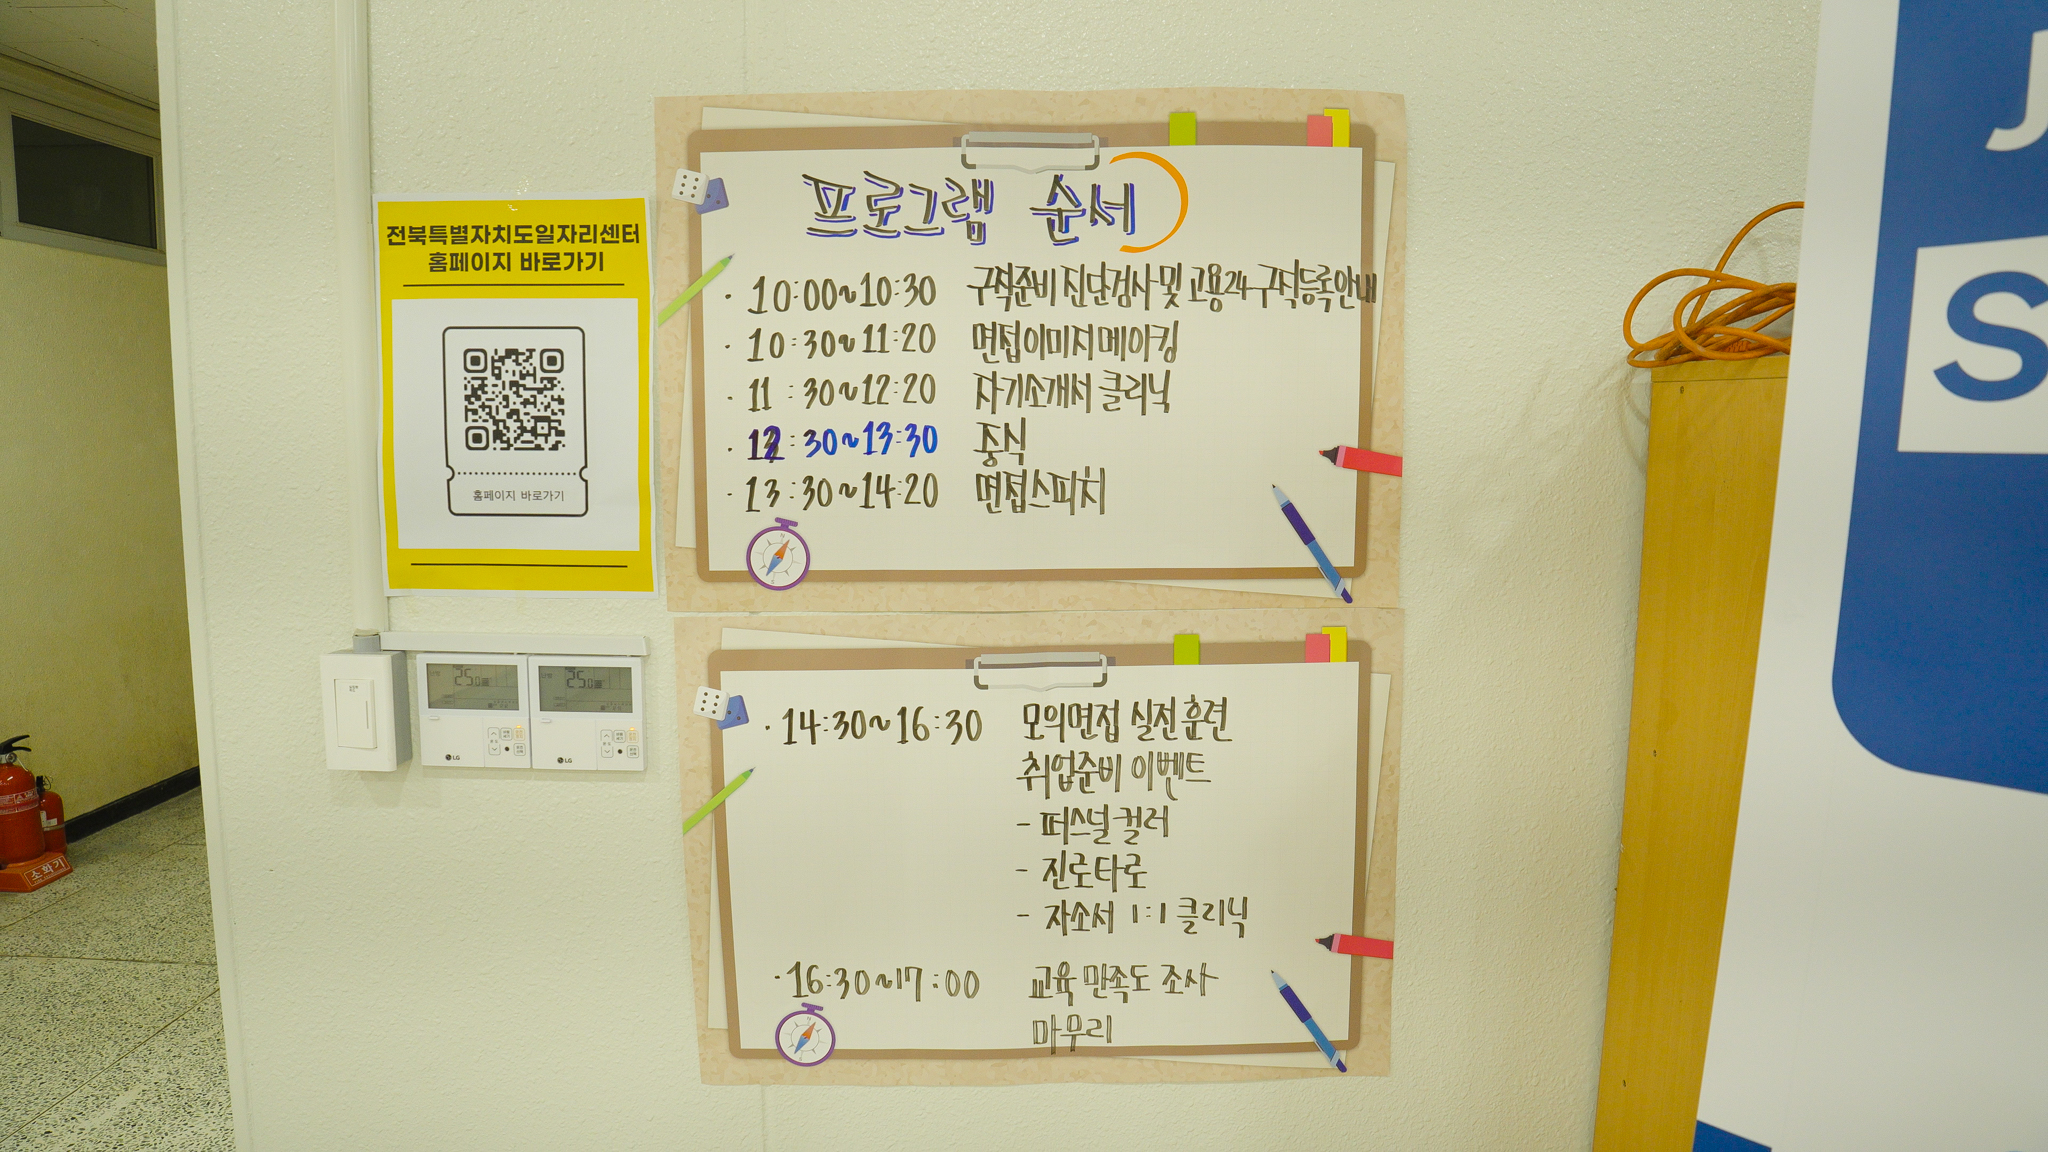 전북특별자치도일자리센터
홈페이지 바로가기
홈페이지 바로가기
프로그램 순서
· 10:00~10:30 구직준비 진단검사 및 고용24 구직등록안내
· 10:30~11:20 면접이미지메이킹
· 11:30~12:20 자기소개서 클리닉
· 12:30~13:30 중식
· 13:30~14:20 면접스피치
· 14:30~16:30 모의면접 실전훈련
취업준비 이벤트
- 퍼스널 컬러
- 진로타로
- 자소서 1:1 클리닉
· 16:30~17:00 교육 만족도 조사
마무리
25.0
25.0
LG
LG
소화기
J
S